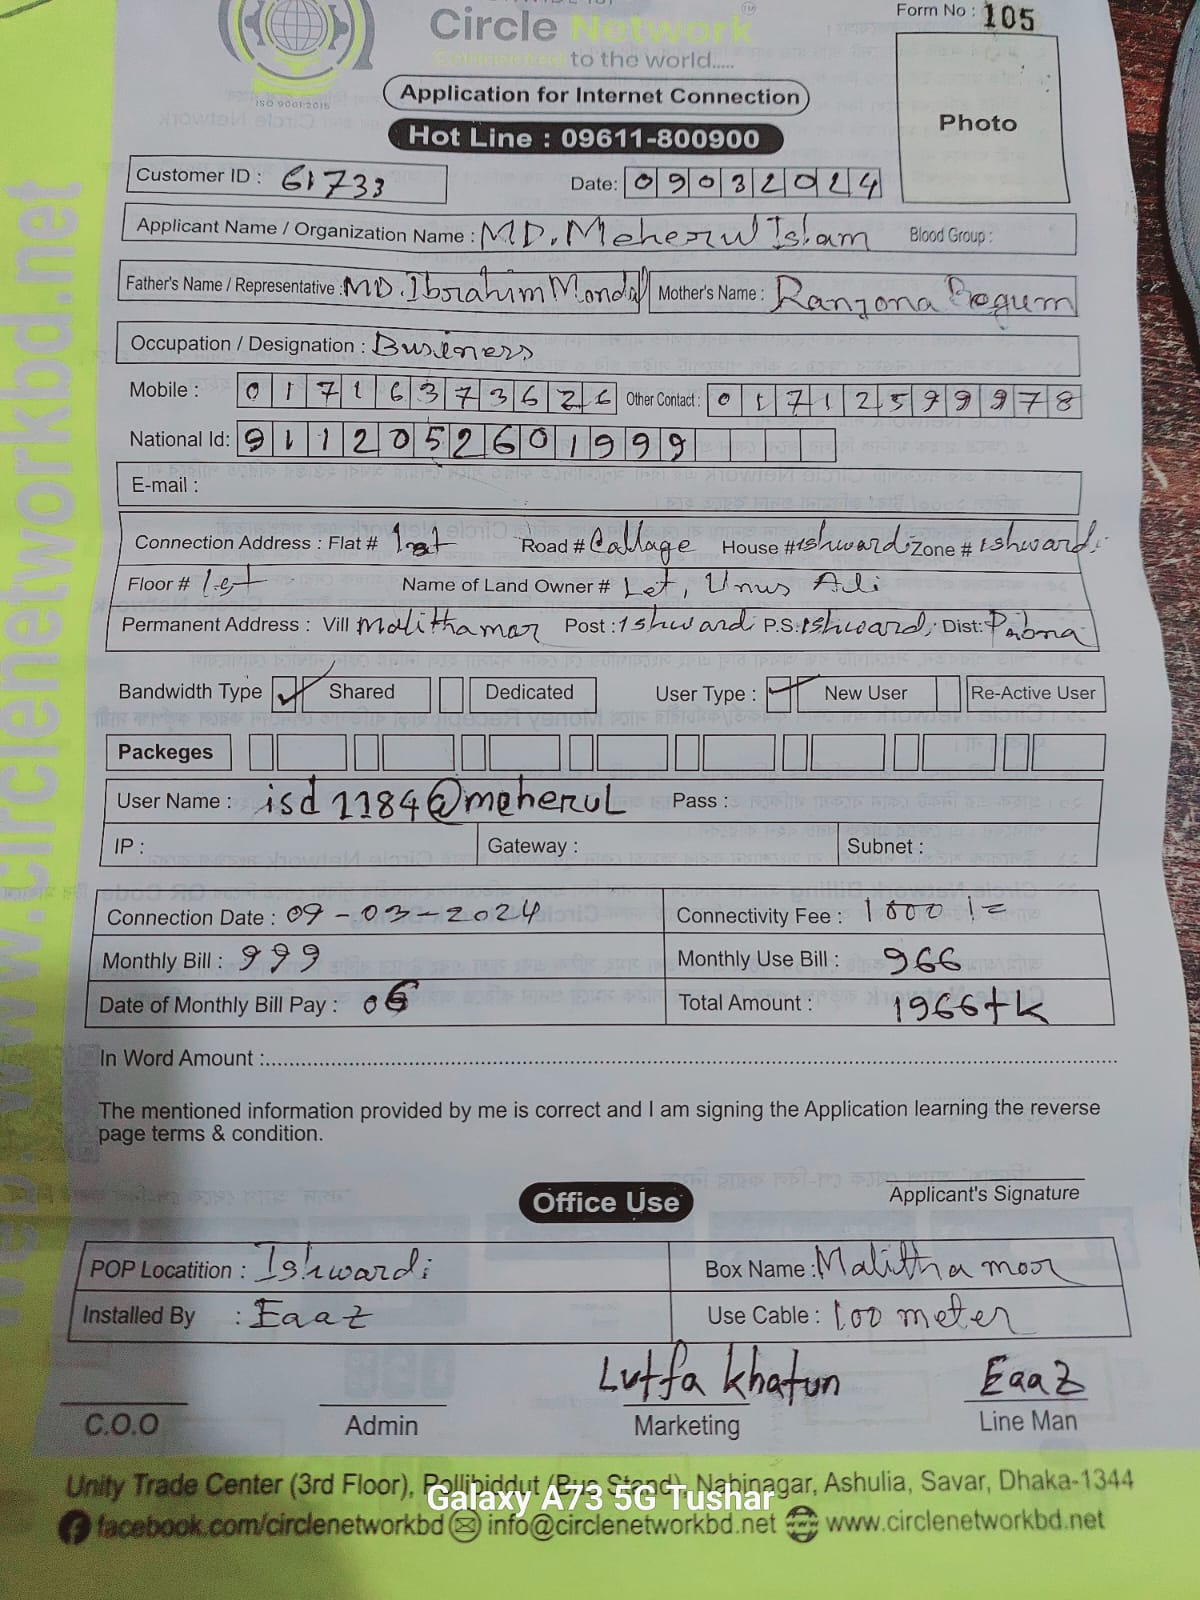 Circle Network TM
Form No : 105
to the world.....
ISO 9001:2015
Application for Internet Connection
Hot Line : 09611-800900
Photo
Customer ID : 61733
Date: 09032024
Applicant Name / Organization Name : MD. Meherul Islam Blood Group :
Father's Name / Representative : MD. Ibrahim Mondal Mother's Name : Ranjona Begum
Occupation / Designation : Business
Mobile : 01716373626 Other Contact : 01712599978
National Id: 9112052601999
E-mail :
Connection Address : Flat # 1st Road # Callage House # ishwardi Zone # ishwardi
Floor # 1st Name of Land Owner # Let, Unus Ali
Permanent Address : Vill Malithamor Post : ishwardi P.S. ishwardi Dist: Pabna
Bandwidth Type ✓ Shared Dedicated User Type : ✓ New User Re-Active User
Packeges
User Name : isd1184@meherul Pass :
IP : Gateway : Subnet :
Connection Date : 09-03-2024 Connectivity Fee : 1000/=
Monthly Bill : 999 Monthly Use Bill : 966
Date of Monthly Bill Pay : 06 Total Amount : 1966tk
In Word Amount :
The mentioned information provided by me is correct and I am signing the Application learning the reverse
page terms & condition.
Applicant's Signature
Office Use
POP Locatition : Ishwardi Box Name : Malitha mor
Installed By : Eaaz Use Cable : 100 meter
Lutfa Khatun Eaaz
C.O.O Admin Marketing Line Man
Unity Trade Center (3rd Floor), Pollibiddut (Bus Stand), Nabinagar, Ashulia, Savar, Dhaka-1344
Galaxy A73 5G Tushar
facebook.com/circlenetworkbd info@circlenetworkbd.net www.circlenetworkbd.net
www.circlenetworkbd.net